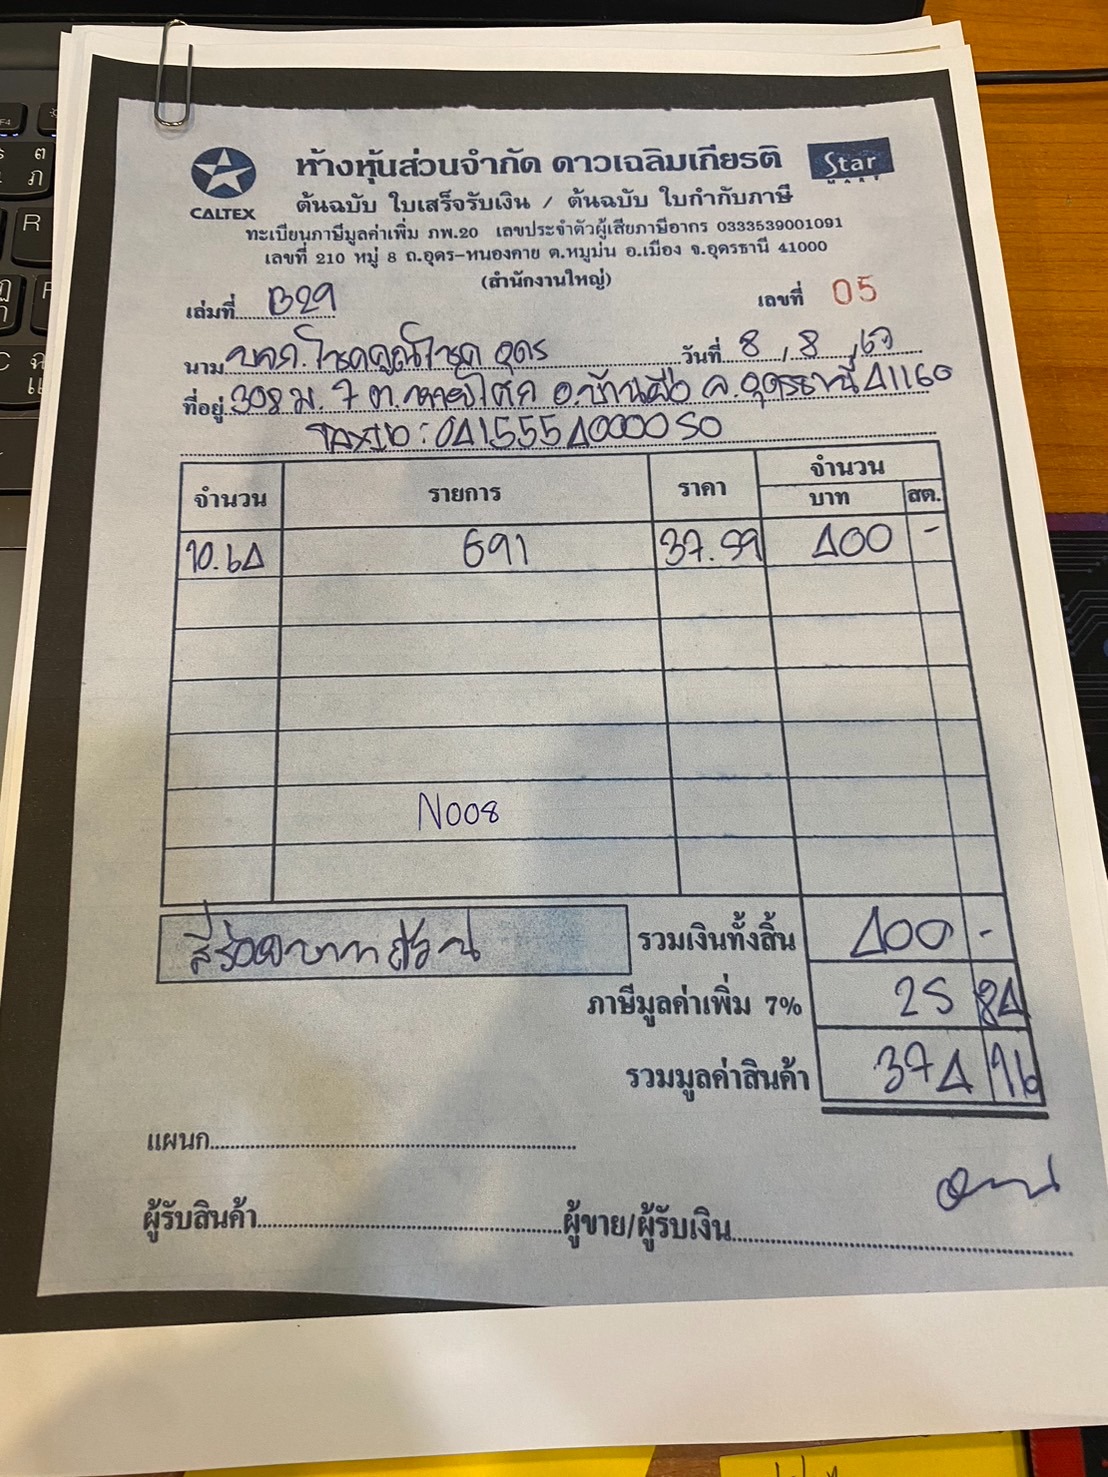 ห้างหุ้นส่วนจำกัด ดาวเฉลิมเกียรติ
Star
MART
CALTEX
ต้นฉบับ ใบเสร็จรับเงิน / ต้นฉบับ ใบกำกับภาษี
ทะเบียนภาษีมูลค่าเพิ่ม ภพ.20 เลขประจำตัวผู้เสียภาษีอากร 0333539001091
เลขที่ 210 หมู่ 8 ถ.อุดร-หนองคาย ต.หมูม่น อ.เมือง จ.อุดรธานี 41000
(สำนักงานใหญ่)
เล่มที่ B29 เลขที่ 05
นาม บจก.โชคคูณโชค อุดร วันที่ 8, 8, 67
ที่อยู่ 308 ม. 7 ต. อ.บ้านผือ จ.อุดรธานี 41160
TAXID : 0415554000050
จำนวน รายการ ราคา จำนวน
บาท สต.
10.64 G91 37.59 400 -
N008
สี่ร้อยบาทถ้วน รวมเงินทั้งสิ้น 400 -
ภาษีมูลค่าเพิ่ม 7% 25 84
รวมมูลค่าสินค้า 374 16
แผนก
ผู้รับสินค้า ผู้ขาย/ผู้รับเงิน
F4
ต
ภ
R